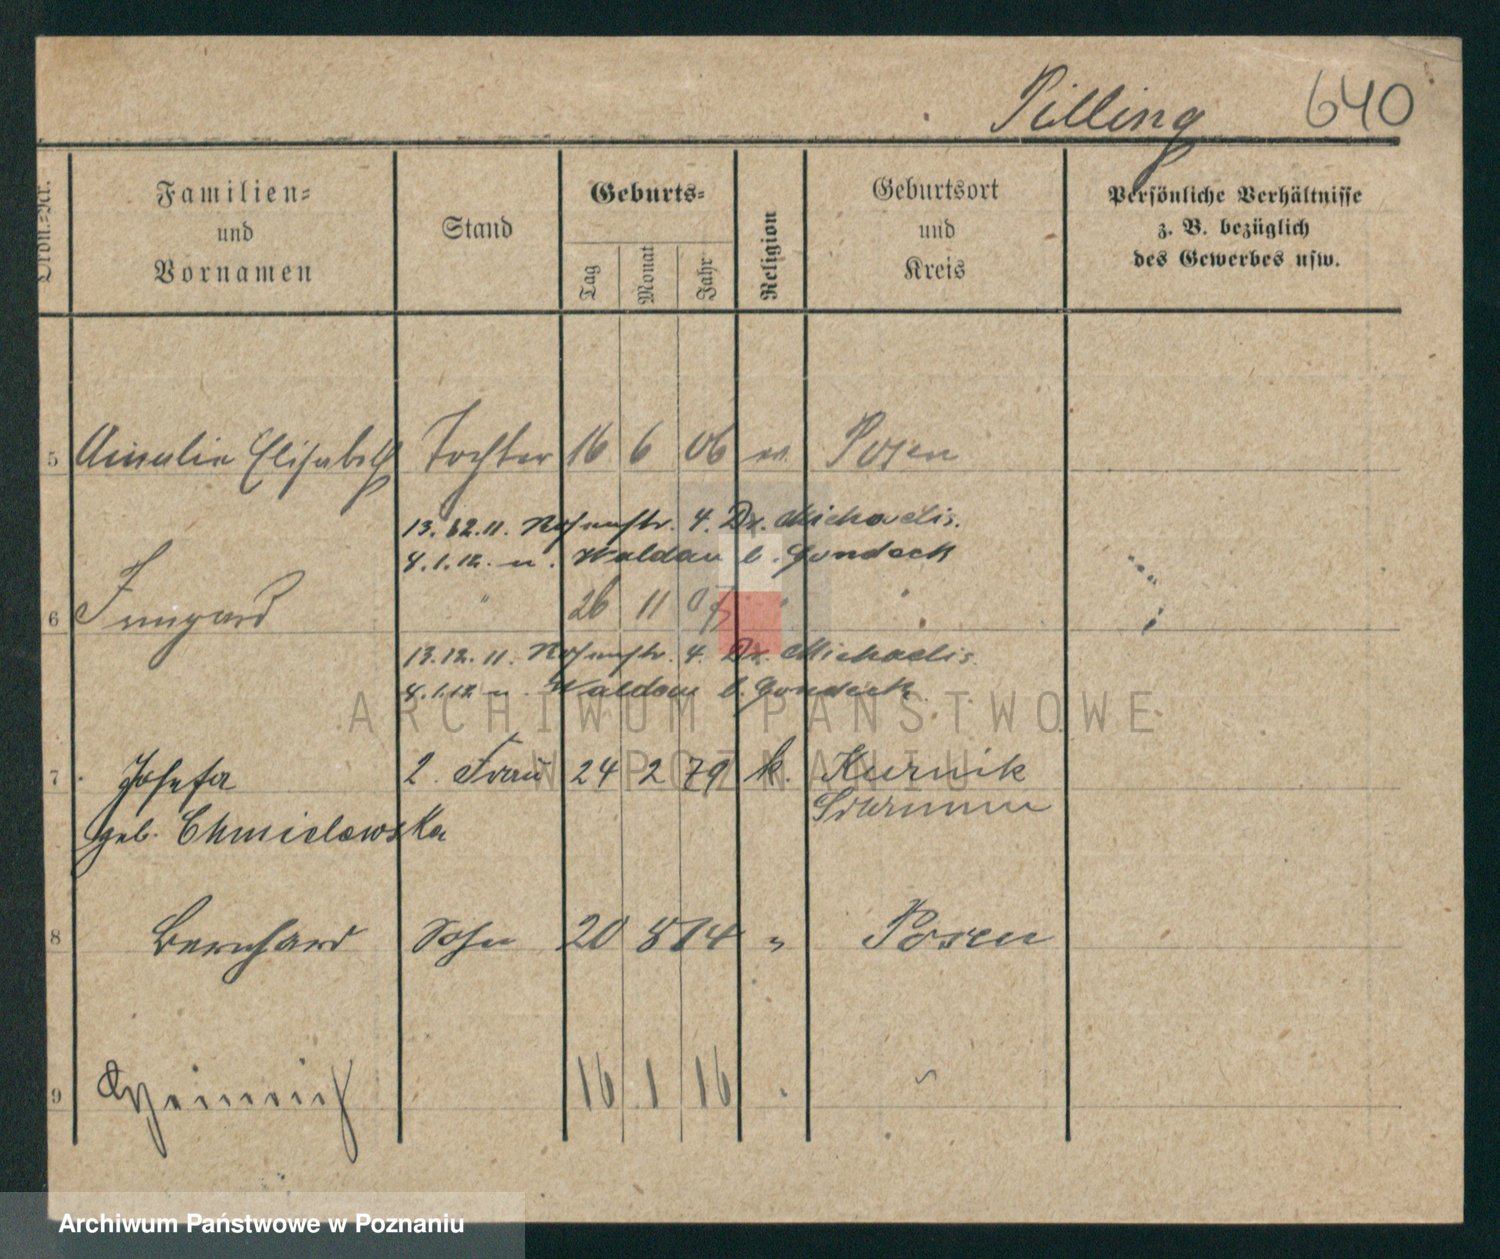 Pilling 640
Ordn.=Nr.
Familien=
und
Vornamen
Stand
Geburts=
Tag
Monat
Jahr
Religion
Geburtsort
und
Kreis
Persönliche Verhältnisse
z. B. bezüglich
des Gewerbes usw.
5 Amalie Elisabeth Tochter 16 6 06 ev. Posen
13.12.11. Rosenstr. 4. Dr. Michaelis.
4.1.12. n. Waldau b. Gondeck
6 Irmgard " 26 11 07 " "
13.12.11. Rosenstr. 4. Dr. Michaelis
4.1.12 n. Waldau b. Gondeck
7 Josefa 2. Frau 24 2 79 k. Kurnik
geb. Chmielewska Schrimm
8 Bernhard Sohn 20 8 14 " Posen
9 Heinrich 16 1 16 " "
ARCHIWUM PAŃSTWOWE
W POZNANIU
Archiwum Państwowe w Poznaniu